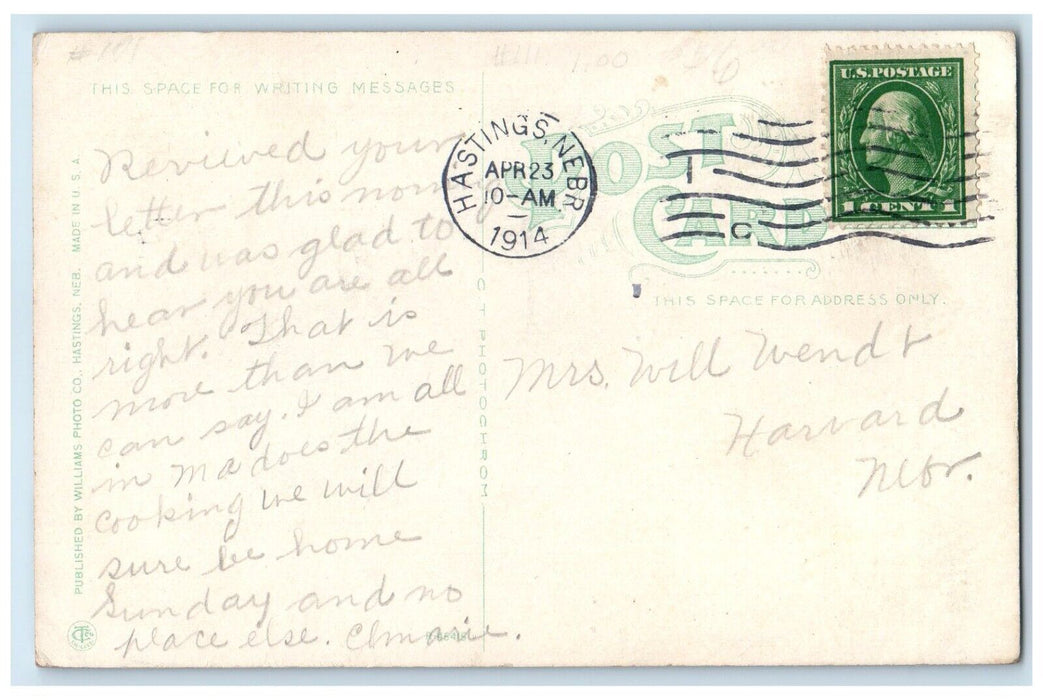 #111
#111 1.00
THIS SPACE FOR WRITING MESSAGES
Revieved your
letter this morning
and was glad to
hear you are all
right. That is
more than we
can say. I am all
in Ma does the
cooking we will
sure be home
Sunday and no
place else.
PUBLISHED BY WILLIAMS PHOTO CO., HASTINGS, NEB. MADE IN U.S.A.
OCT PHOTOCHROM
HASTINGS, NEBR
APR 23
10-AM
1914
POST
CARD
1
C
U.S. POSTAGE
1 CENT 1
THIS SPACE FOR ADDRESS ONLY.
Mrs. Will Wendt
Harvard
Nebr.